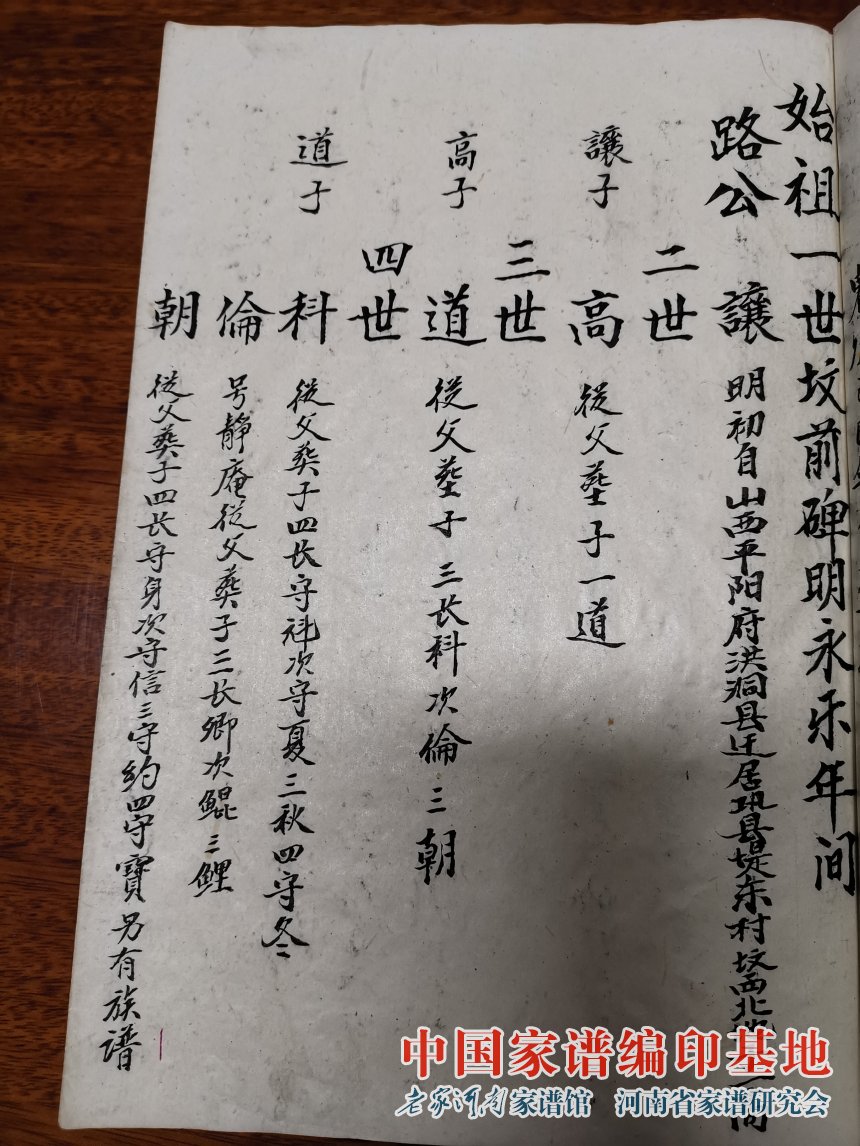 始祖一世坟前碑明永乐年间
路公 讓 明初自山西平阳府洪洞县迁居巩县堤东村坟西北
二世
讓子 高 從父塟子一道
三世
高子 道 從父塟子三长科次倫三朝
四世
道子 科 從父葬子四长守科次守夏三秋四守冬
倫 号靜庵從父葬子三长卿次鯤三鯉
朝 從父葬子四长守身次守信三守约四守寶另有族谱
中国家谱编印基地
老家河南家谱馆 河南省家谱研究会